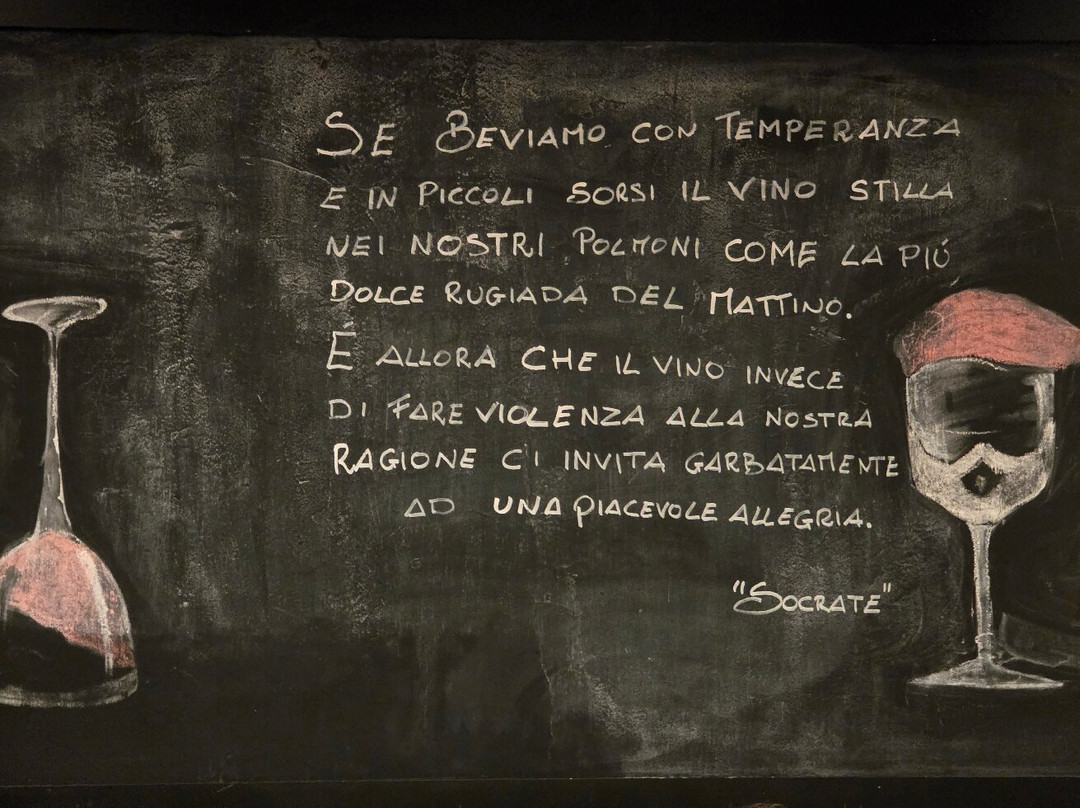 SE BEVIAMO CON TEMPERANZA
E IN PICCOLI SORSI IL VINO STILLA
NEI NOSTRI POLMONI COME LA PIÚ
DOLCE RUGIADA DEL MATTINO.
É ALLORA CHE IL VINO INVECE
DI FARE VIOLENZA ALLA NOSTRA
RAGIONE CI INVITA GARBATAMENTE
AD UNA PIACEVOLE ALLEGRIA.
"SOCRATE"